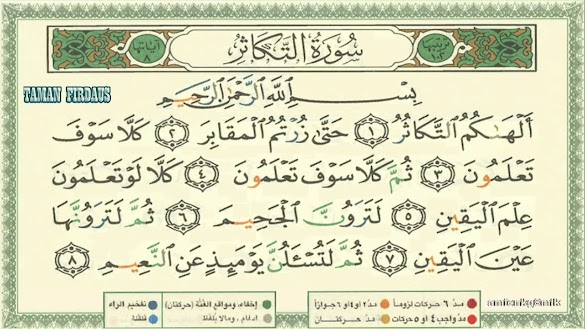 ترتيبها ١٠٢
سُورَةُ التَّكَاثُرِ
آياتها ٨
TAMAN FIRDAUS
بِسْمِ اللَّهِ الرَّحْمَٰنِ الرَّحِيمِ
أَلْهَىٰكُمُ التَّكَاثُرُ ١ حَتَّىٰ زُرْتُمُ الْمَقَابِرَ ٢ كَلَّا سَوْفَ
تَعْلَمُونَ ٣ ثُمَّ كَلَّا سَوْفَ تَعْلَمُونَ ٤ كَلَّا لَوْ تَعْلَمُونَ
عِلْمَ الْيَقِينِ ٥ لَتَرَوُنَّ الْجَحِيمَ ٦ ثُمَّ لَتَرَوُنَّهَا
عَيْنَ الْيَقِينِ ٧ ثُمَّ لَتُسْـَٔلُنَّ يَوْمَئِذٍ عَنِ النَّعِيمِ ٨
مدّ ٦ حركات لزوماً مدّ ٢ أو ٤ أو ٦ جوازاً إخفاء، ومواقع الغُنَّة (حركتان) تفخيم الراء
مدّ واجب ٤ أو ٥ حركات مدّ حركتان إدغام، ومالا يُلفظ قلقلة